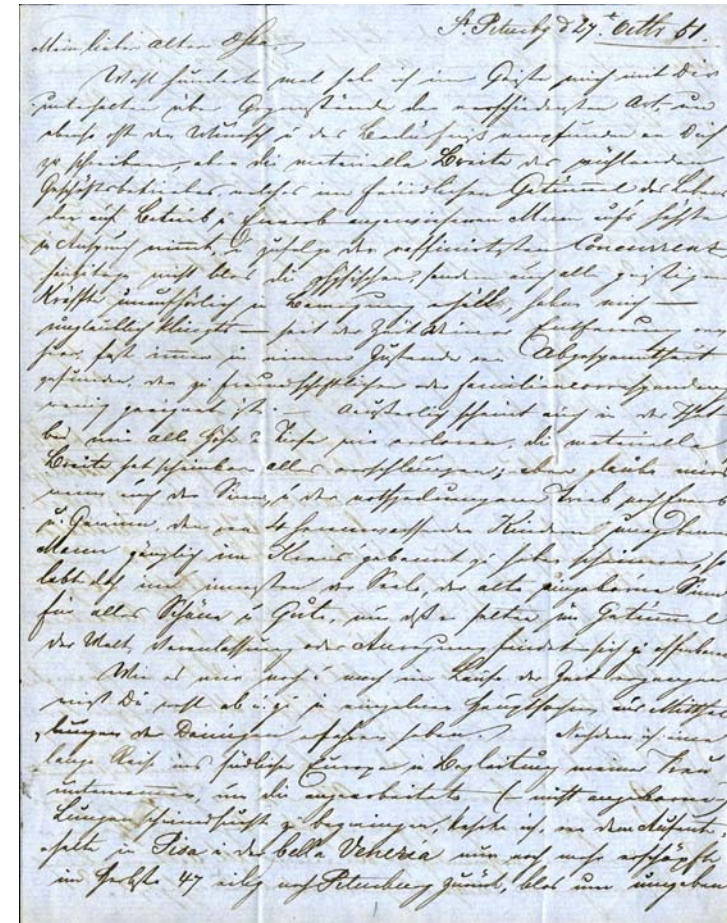 St. Petersbg d 27t. Octbr 51.
Mein lieber alter
Wohl hunderte mal habe ich im Geiste mich mit Dir
unterhalten über Gegenstände der verschiedensten Art, und
ebenso oft den Wunsch u das Bedürfniß empfunden an Dich
zu schreiben, aber die materielle Breite des
Geschäftsbetriebes welches im feindlichen Getümmel des Lebens
den auf Betrieb u Erwerb angewiesenen Mann aufs höchste
in Anspruch nimmt, u zufolge der raffinirtesten Concurrenz
nicht blos die physischen, sondern auch alle geistigen
Kräfte unaufhörlich in Bewegung erhält, haben mich —
unglaublich klingts — seit der Zeit Deiner Entfernung von
hier fast immer in einem Zustande von Abgespanntheit
gefunden, der zu freundschaftlicher oder familiencorrespondenz
wenig geeignet ist. — Äußerlich scheint auch in der That
bei mir alle Höhe u Tiefe verloren, die materielle
Breite hat scheinbar alles verschlungen; aber glaube mir
wenn auch der Sinn, u der Trieb nach
u. Gewinn, den von 4 heranwachsenden Kindern umgebenen
Mann gänzlich im Kreis gebannt zu haben scheinen, so
lebt doch im innersten der Seele, der alte, eingeborne Sinn
für alles Schöne u Gute, nur daß er selten im Getümmel
der Welt, Veranlassung oder Anregung findet sich zu offenbaren
Wie es mir nach u nach im Laufe der Zeit ergangen
wirst Du wohl ab u zu in einzelnen Hauptsachen aus Mitthei-
lungen der Deinigen erfahren haben. Nachdem ich eine
lange Reise ins südliche Europa in Begleitung meiner Frau
unternommen, um die angearbeitete (— nicht angeborene
Lungenschwindsucht zu bezwingen, kehrte ich, von dem Aufent-
halte in Pisa u der bella Venezia nur noch mehr erschöpft
im Herbste 47 eilig nach Petersburg zurück, blos um umgeben